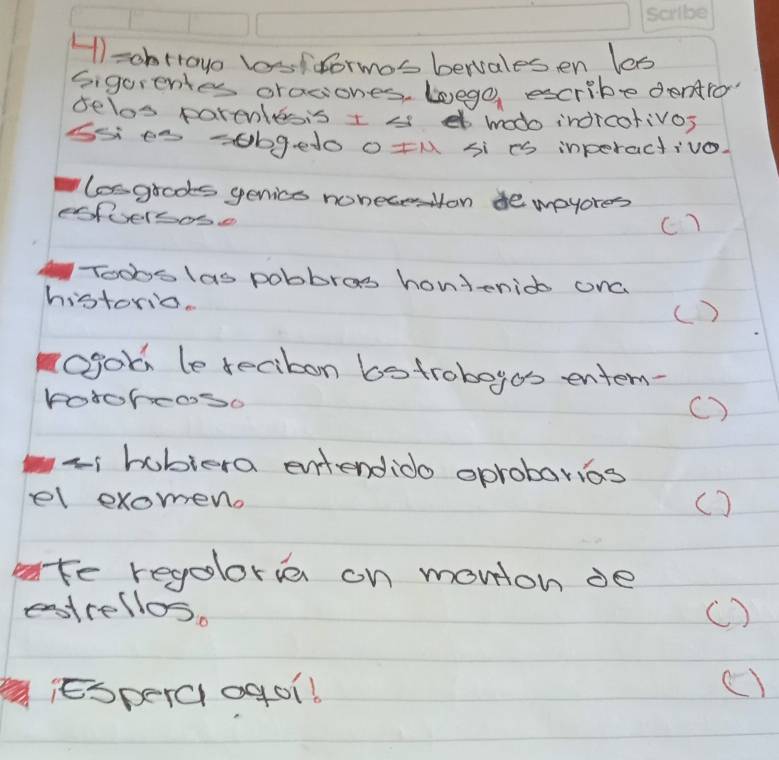 Scribe
4) sobttaya los formos bervales en les
sigorentes oraciones. Luego, escribe dentro
delos parentesis I si el modo indicotivo,
S si es subgeto o IM si es inperactivo.
Los grodes genios nonecesiton de mayores
esfuersos.
( )
Todos las pobbras hontenido ona
historio.
( )
ogolá le reciban los trobegos entem-
( )
si hubiera entendido oprobarías
el exomen.
( )
te regoloría on monton de
estrellos.
( )
¡Espera aqoí!
( )